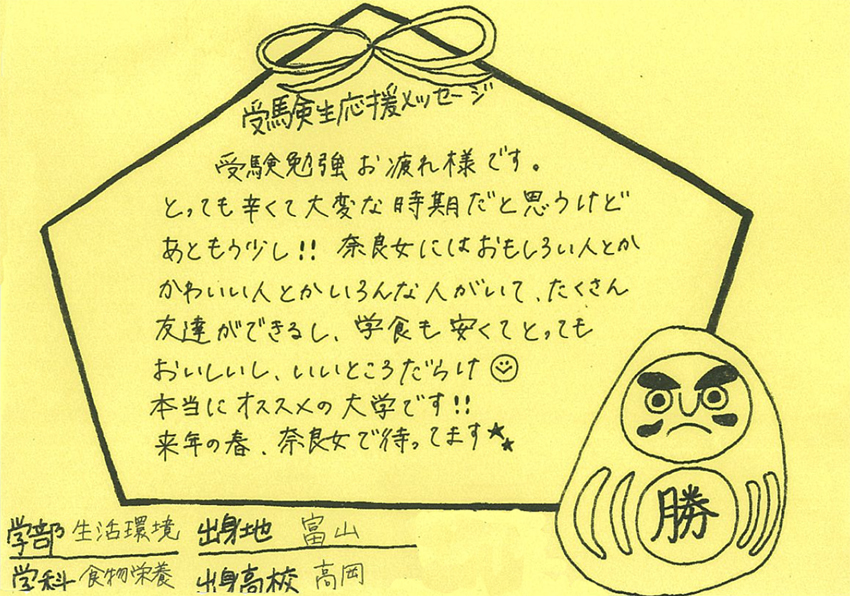 受験生応援メッセージ
受験勉強お疲れ様です。
とっても辛くて大変な時期だと思うけど
あともう少し!! 奈良女にはおもしろい人とか
かわいい人とかいろんな人がいて、たくさん
友達ができるし、学食も安くてとっても
おいしいし、いいところだらけ☺
本当にオススメの大学です!!
来年の春、奈良女で待ってます★★
勝
学部 生活環境 出身地 富山
学科 食物栄養 出身高校 高岡